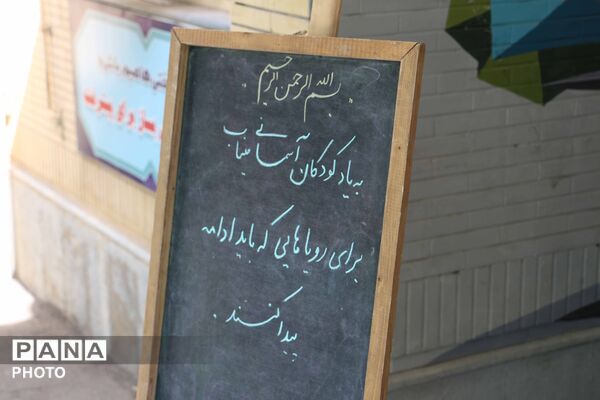 بسم الله الرحمن الرحیم
به یاد کودکان آسمانی میناب
برای رویاهایی که باید ادامه
پیدا کنند.
PANA
PHOTO